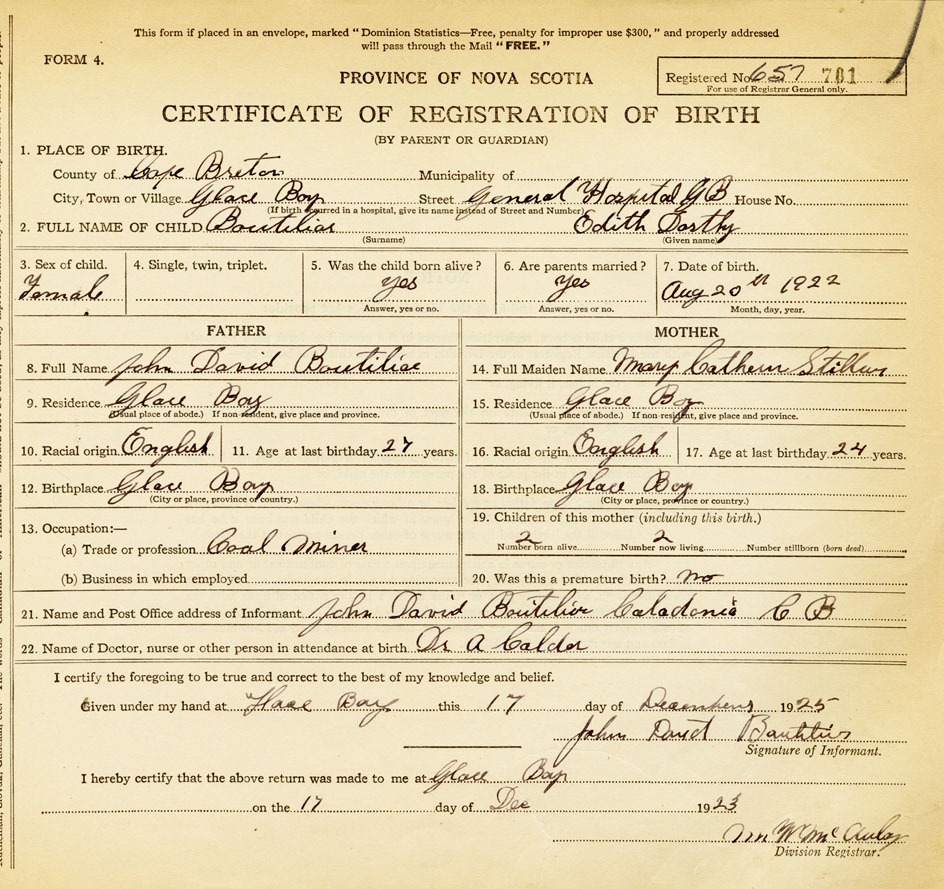 This form if placed in an envelope, marked "Dominion Statistics—Free, penalty for improper use $300," and properly addressed
will pass through the Mail "FREE."
FORM 4.
PROVINCE OF NOVA SCOTIA
Registered No. 657 701
For use of Registrar General only.
CERTIFICATE OF REGISTRATION OF BIRTH
(BY PARENT OR GUARDIAN)
1. PLACE OF BIRTH.
County of Cape Breton Municipality of
City, Town or Village Glace Bay Street General Hospital G B House No.
(If birth occurred in a hospital, give its name instead of Street and Number)
2. FULL NAME OF CHILD Boutilier Edith Dorthy
(Surname) (Given name)
3. Sex of child. 4. Single, twin, triplet. 5. Was the child born alive? 6. Are parents married? 7. Date of birth.
Female Yes Yes Aug 20th 1922
Answer, yes or no. Answer, yes or no. Month, day, year.
FATHER MOTHER
8. Full Name John David Boutilier 14. Full Maiden Name Mary Cathern
9. Residence Glace Bay 15. Residence Glace Bay
(Usual place of abode.) If non-resident, give place and province. (Usual place of abode.) If non-resident, give place and province.
10. Racial origin English 11. Age at last birthday 27 years. 16. Racial origin English 17. Age at last birthday 24 years.
12. Birthplace Glace Bay 18. Birthplace Glace Bay
(City or place, province or country.) (City or place, province or country.)
13. Occupation:— 19. Children of this mother (including this birth.)
(a) Trade or profession Coal Miner 2 2
Number born alive Number now living Number stillborn (born dead)
(b) Business in which employed 20. Was this a premature birth? no
21. Name and Post Office address of Informant John David Boutilier Caladonia C B
22. Name of Doctor, nurse or other person in attendance at birth Dr A Calder
I certify the foregoing to be true and correct to the best of my knowledge and belief.
Given under my hand at Glace Bay this 17 day of December 1925
John David Boutilier
Signature of Informant.
I hereby certify that the above return was made to me at Glace Bay
on the 17 day of Dec 1923
McAulay
Division Registrar.